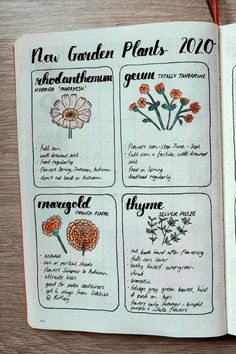 New Garden Plants 2020
rhodanthemum
HYBRIDA 'MARRAKESH'
- full sun
- well drained soil
- feed regularly
- flowers Spring, Summer, Autumn
- don't cut back in Autumn
geum TOTALLY TANGERINE
- flowers non-stop June - Sept
- full sun + fertile, well drained
soil
- feed in Spring
- deadhead regularly
marigold
FRENCH FLAIR
- annual
- sun or partial shade
- flowers Summer to Autumn
- attracts bees
- good for patio containers
- got 6 plugs from
thyme
SILVER POSIE
- cut back hard after flowering
- full sun lover
- bushy dwarf evergreen
shrub
- aromatic
- foliage grey green leaves, hint
of pink on tips
- flowers early Summer - bright
purple + white flowers